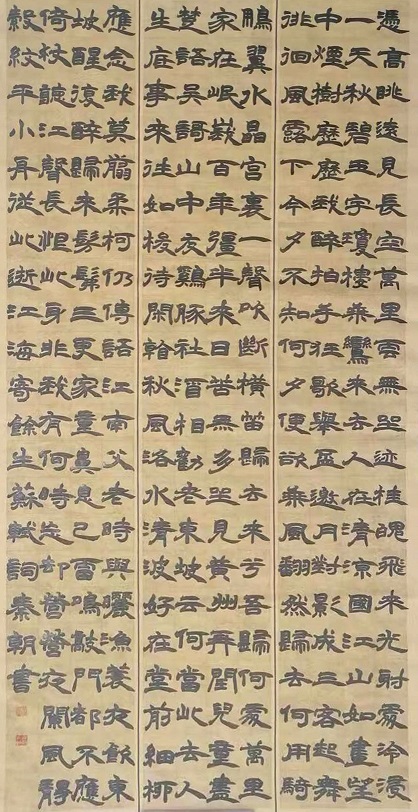 憑高眺遠見長空萬里雲無留迹桂魄飛來光射處冷浸
一天秋碧玉宇瓊樓乘鸞來去人在清涼國江山如畫望
中煙樹歷歷我醉拍手狂歌舉盃邀月對影成三客起舞
徘徊風露下今夕不知何夕便欲乘風翻然歸去何用騎
鵬翼水晶宮裏一聲吹斷橫笛歸去來兮吾歸何處萬里
家在岷峨百年彊半來日苦無多坐見黃州再閏兒童盡
楚語吳語山中友雞豚社酒相勸老東坡云何當此去人
生底事來往如梭待閑看秋風洛水清波好在堂前細柳
應念我莫翦柔柯仍傳語江南父老時與曬漁蓑夜飲東
坡醒復醉歸來髣髴三更家童鼻息已雷鳴敲門都不應
倚杖聽江聲長恨此身非我有何時忘卻營營夜闌風靜
縠紋平小舟從此逝江海寄餘生蘇軾詞秦朝書